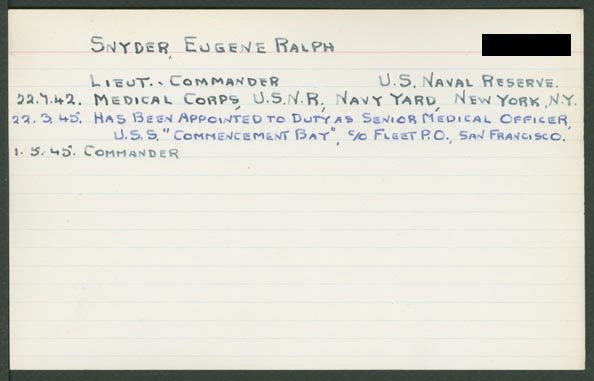 SNYDER, EUGENE RALPH
LIEUT.. COMMANDER U.S. NAVAL RESERVE.
22.7.42. MEDICAL CORPS, U.S.N.R., NAVY YARD, NEW YORK, N.Y.
22.3.45. HAS BEEN APPOINTED TO DUTY AS SENIOR MEDICAL OFFICER,
U.S.S. "COMMENCEMENT BAY", C/O FLEET P.O., SAN FRANCISCO.
1.5.45. COMMANDER